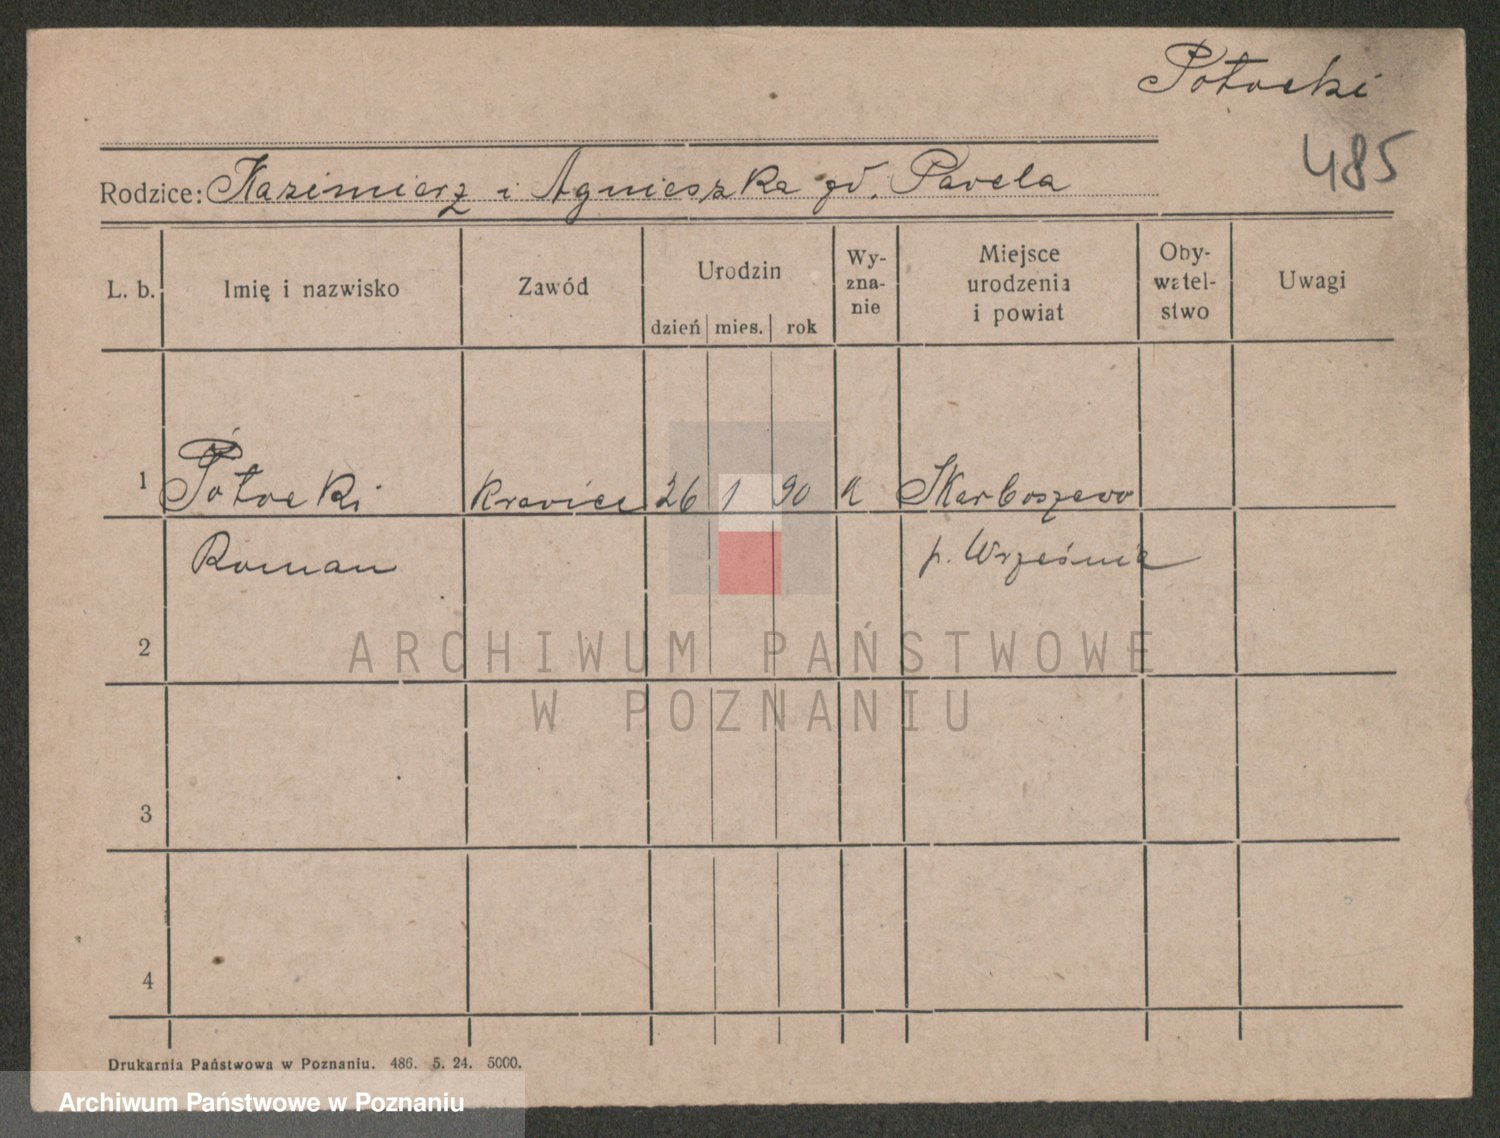 Potocki
485
Rodzice: Kazimierz i Agnieszka gd. Pawela
L. b.
Imię i nazwisko
Zawód
Urodzin
dzień
mies.
rok
Wy-
zna-
nie
Miejsce
urodzenia
i powiat
Oby-
watel-
stwo
Uwagi
1 Potocki krawiec 26 1 90 k Skarboszewo
Roman p. Września
2
3
4
ARCHIWUM PAŃSTWOWE
W POZNANIU
Drukarnia Państwowa w Poznaniu. 486. 5. 24. 5000.
Archiwum Państwowe w Poznaniu